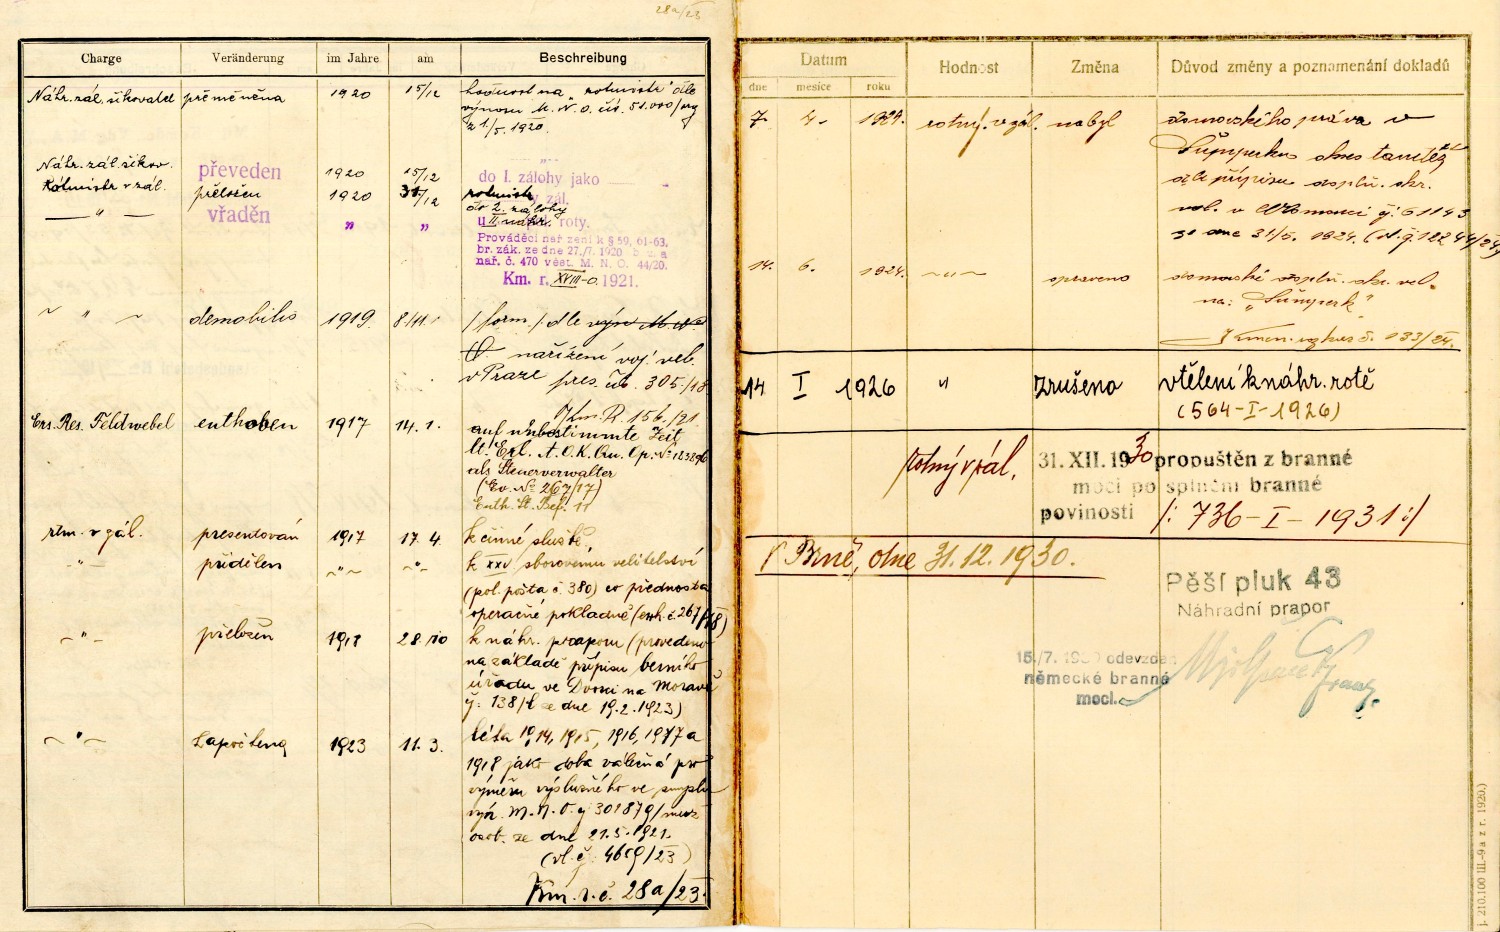 28a/23
Charge Veränderung im Jahre am Beschreibung
Náhr. zál. šikovatel přeměněna 1920 15/12 hodnost na „rotmistr" dle
výnosu M. N. O. čís. 51.000/org
z 1./5. 1920.
Náhr. zál. šikov. převeden 1920 15/12 do I. zálohy jako
Rotmistr v zál. přeložen 1920 31/12 rotmistr zál.
do 2. zálohy
— " — vřaděn „ „ u II náhr. roty.
Prováděcí nař zení k § 59, 61-63,
br. zák. ze dne 27./7. 1920 b. z. a
nař. č. 470 věst. M. N. O. 44/20.
Km. r. XVIII-0. 1921.
~ " ~ demobilis 1919. /form./ dle výn M. N.
O. nařízení voj. vel.
v Praze pres. čís. 305./18
Km. R. 156./21
Ers. Res. Feldwebel enthoben 1917 14. 1. auf unbestimmte Zeit
lt. Erl. A. O. K. Qu. Op. № 123296
als Steuerverwalter
(Ev. № 267/17)
Enth. St. Bef. 11
rtm. v zál. presentován 1917 17. 4. k činné službě.
~"~ přidělen ~"~ ~"~ k XXV sborovému velitelství
(pol. pošta č. 380) co přednosta
operačné pokladně (enh. č. 267/18)
~"~ přeložen 1918 28./10 k náhr. praporu (provedeno
na základě přípisu berního
úřadu ve Dvorci na Moravě
č. 138/1 ze dne 19. 2. 1923)
~"~ Započtena 1923 11. 3. léta 1914, 1915, 1916, 1917 a
1918 jako doba válečná pro
výměru výslužného ve smyslu
výn. M. N. O. č. 301879/
osob. ze dne 21. 5. 1921.
(vl. č. 4659/23)
Km. r. č. 28a/23.
Datum Hodnost Změna Důvod změny a poznamenání dokladů
dne mesíce roku
7. 4. 1924. rotný. v zál. nabyl domovského práva v
Šumperku okres tamtéž
dle přípisu doplň. okr.
vel. v Olomouci č: 61143
ze dne 31/5. 1924. (d. č. 12244/24)
14. 6. 1924. ~"~ opraveno domovské doplň. okr. vel-
na: „Šumperk"
Kmen. výkaz č. 133/24.
14 I 1926 " Zrušeno vtělení k náhr. rotě
(564-I-1926)
rotný v zál. 31. XII. 1930 propuštěn z branné
moci po splnění branné
povinosti /: 736-I-1931 :/
V Brně, dne 31. 12. 1930.
Pěší pluk 43
Náhradní prapor
15./7. odevzdán
německé branné
moci.